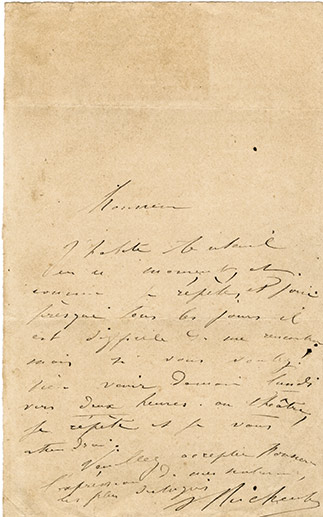 Monsieur
J'habite
en ce moment, et
comme je répète et joue
presque tous les jours il
est difficile de me rencontrer
mais si vous voulez
venir demain lundi
vers deux heures au théâtre,
je répète et je vous
attendrai.
Veuillez accepter Monsieur
l'expression de mes
les plus distingués